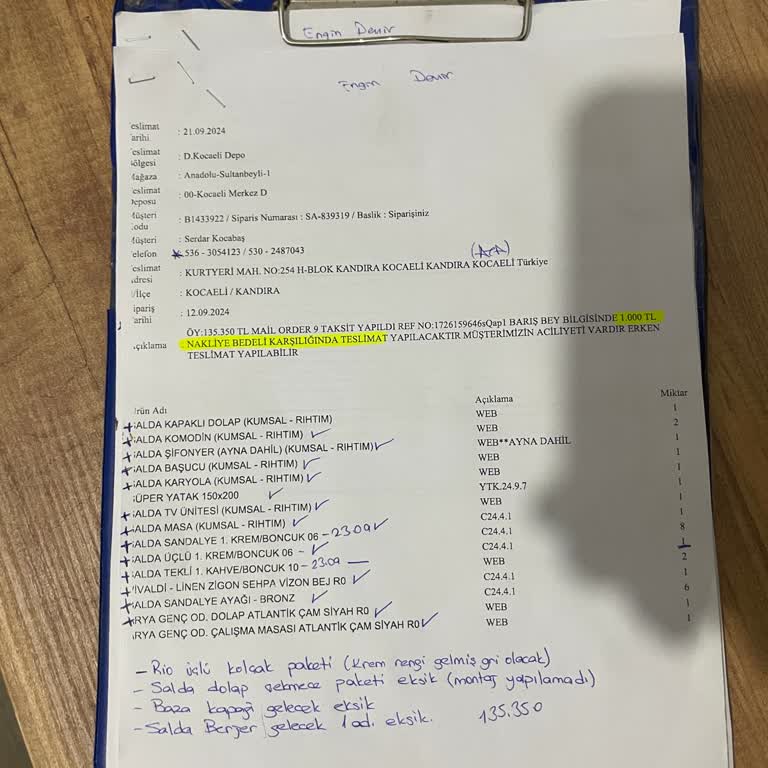 Engin Demir
Engin Demir
eslimat arihi : 21.09.2024
eslimat ölgesi : D.Kocaeli Depo
ağaza : Anadolu-Sultanbeyli-1
eslimat eposu : 00-Kocaeli Merkez D
üşteri odu : B1433922 / Siparis Numarası : SA-839319 / Baslik : Siparişiniz
üşteri : Serdar Kocabaş
elefon : 536 - 3054123 / 530 - 2487043
eslimat dresi : KURTYERİ MAH. NO:254 H-BLOK KANDIRA KOCAELİ KANDIRA KOCAELİ Türkiye
/İlçe : KOCAELİ / KANDIRA
ipariş arihi : 12.09.2024
ÖY:135.350 TL MAİL ORDER 9 TAKSİT YAPILDI REF NO:1726159646sQap1 BARIŞ BEY BİLGİSİNDE 1.000 TL
çıklama : NAKLİYE BEDELİ KARŞILIĞINDA TESLİMAT YAPILACAKTIR MÜŞTERİMİZİN ACİLİYETİ VARDIR ERKEN
TESLİMAT YAPILABİLİR
rün Adı Açıklama Miktar
ALDA KAPAKLI DOLAP (KUMSAL - RIHTIM) WEB 1
ALDA KOMODİN (KUMSAL - RIHTIM) WEB 2
ALDA ŞİFONYER (AYNA DAHİL) (KUMSAL - RIHTIM) WEB**AYNA DAHİL 1
ALDA BAŞUCU (KUMSAL - RIHTIM) WEB 1
ALDA KARYOLA (KUMSAL - RIHTIM) WEB 1
ÜPER YATAK 150x200 YTK.24.9.7 1
ALDA TV ÜNİTESİ (KUMSAL - RIHTIM) WEB 1
ALDA MASA (KUMSAL - RIHTIM) C24.4.1 1
ALDA SANDALYE 1. KREM/BONCUK 06 - 23.09 C24.4.1 8
ALDA ÜÇLÜ 1. KREM/BONCUK 06 - C24.4.1 1
ALDA TEKLİ 1. KAHVE/BONCUK 10 - 23.09 WEB 2
İVALDİ - LİNEN ZİGON SEHPA VİZON BEJ R0 C24.4.1 1
ALDA SANDALYE AYAĞI - BRONZ C24.4.1 6
RYA GENÇ OD. DOLAP ATLANTİK ÇAM SİYAH R0 WEB 1
RYA GENÇ OD. ÇALIŞMA MASASI ATLANTİK ÇAM SİYAH R0 WEB 1
- Rio üçlü kolçak paketi (Krem rengi gelmiş gri olacak)
- Salda dolap çekmece paketi eksik (montaj yapılamadı)
- Baza kapağı gelecek eksik
- Salda Berjer gelecek 1 ad. eksik. 135.350